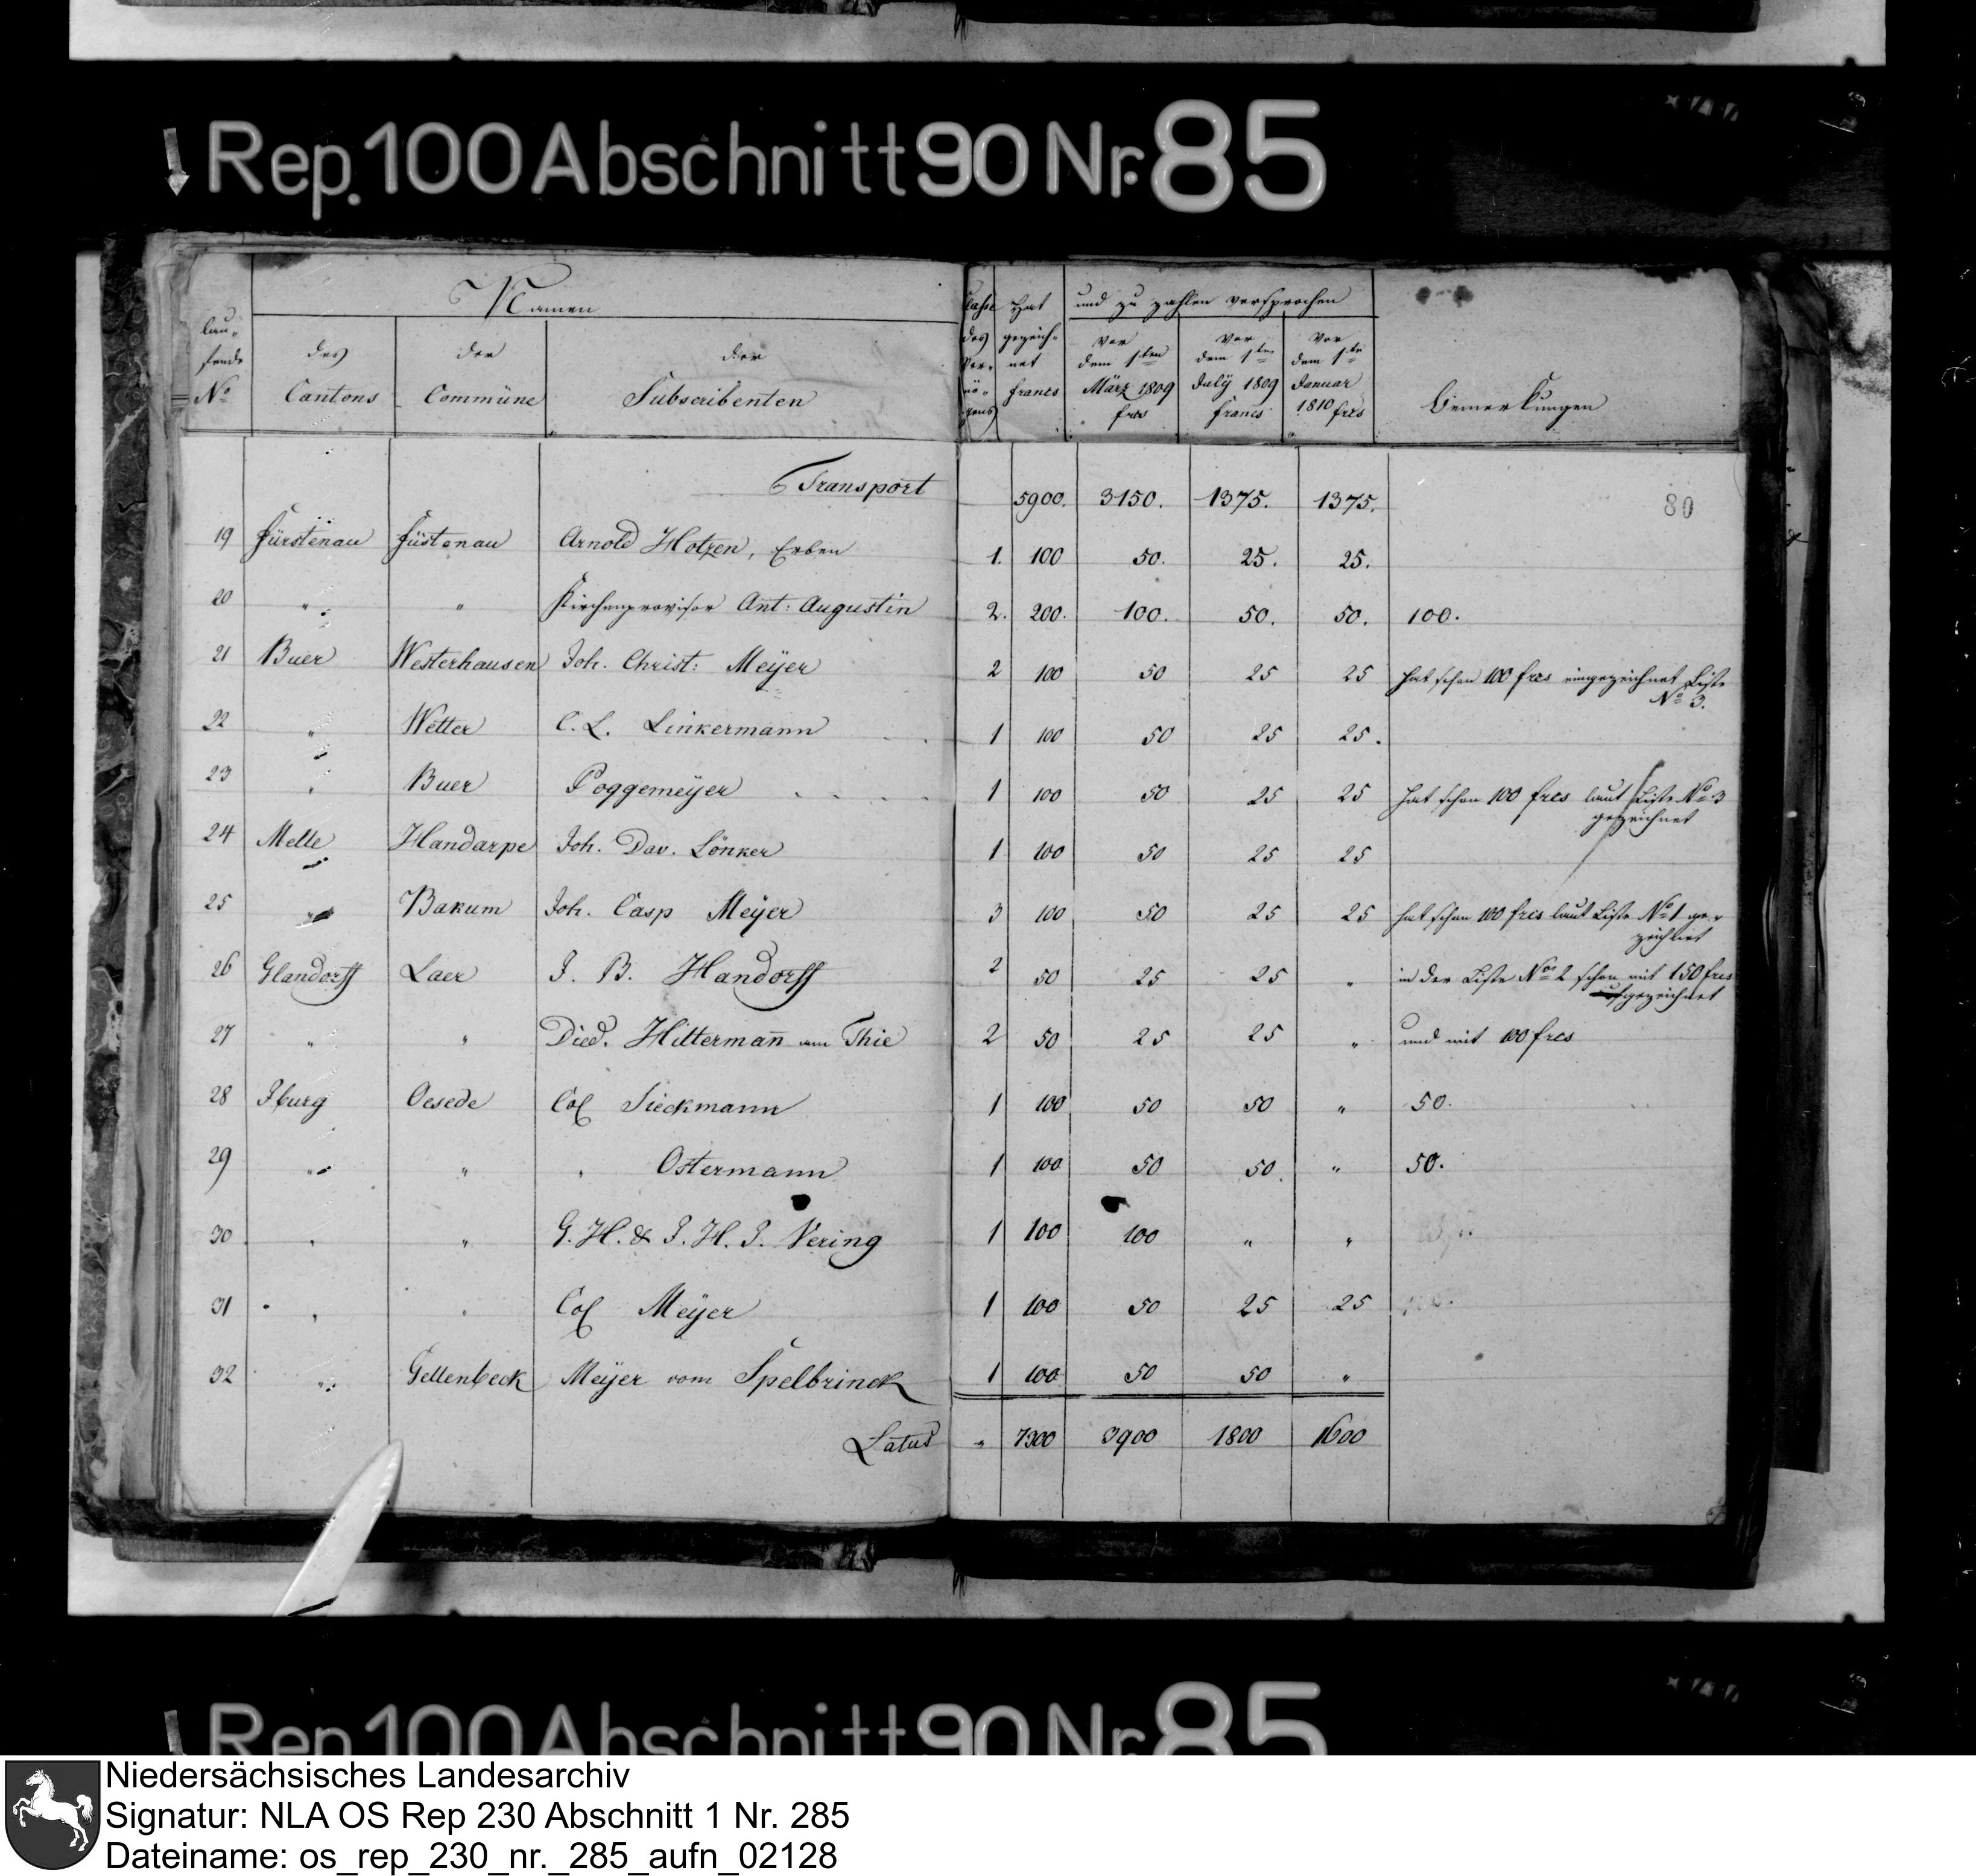 Rep. 100 Abschnitt 90 Nr. 85
Namen
Classe des Ver- mö- gens
Hat gezeich- net francs
und zu zahlen versprochen
lau- fende No
des Cantons
der Commüne
der Subscribenten
vor dem 1ten März 1809 frcs
vor dem 1ten July 1809 francs
vor dem 1ten Januar 1810 frcs
Bemerkungen
Transport 5900. 3150. 1375. 1375.
80
19 Fürstenau Füstenau Arnold Hotzen, Erben 1. 100 50. 25. 25.
20 " " Kirchenprovisor Ant: Augustin 2. 200. 100. 50. 50. 100.
21 Buer Westerhausen Joh. Christ: Meÿer 2 100 50 25 25 hat schon 100 frcs eingezeichnet Liste
No 3.
22 " Wetter C. L. Linkermann 1 100 50 25 25.
23 " Buer Poggemeÿer 1 100 50 25 25 hat schon 100 frcs laut Liste No 3
gezeichnet
24 Melle Handarpe Joh. Dav. Lönker 1 100 50 25 25
25 " Bakum Joh. Casp Meÿer 3 100 50 25 25 hat schon 100 frcs laut Liste No 1 ge-
zeichnet
26 Glandorff Laer J. B. Handorff 2 50 25 25 " in der Liste No 2 schon mit 150 frcs
gezeichnet
27 " " Died. Hilterman̄ am Thie 2 50 25 25 " und mit 100 frcs
28 Iburg Oesede Col Sieckmann 1 100 50 50 " 50.
29 " " " Ostermann 1 100 50 50. " 50.
30 " " G. H. & J. H. J. Vering 1 100 100 " "
31 " " Col Meÿer 1 100 50 25 25
32 " Gellenbeck Meÿer vom Spelbrinck 1 100 50 50 "
Latus " 7300 3900 1800 1600
Rep. 100 Abschnitt 90 Nr. 85
Niedersächsisches Landesarchiv
Signatur: NLA OS Rep 230 Abschnitt 1 Nr. 285
Dateiname: os_rep_230_nr._285_aufn_02128